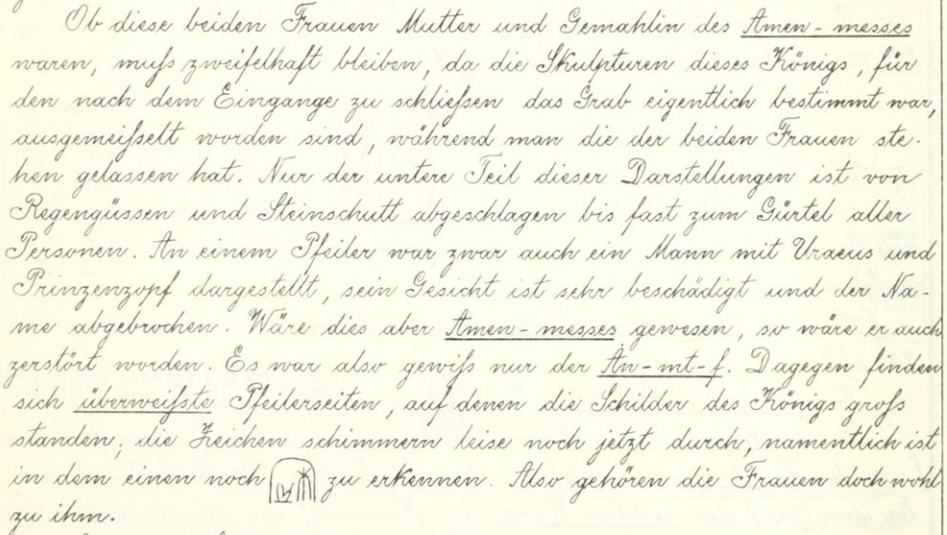 Ob diese beiden Frauen Mutter und Gemahlin des Amen-messes
waren, muß zweifelhaft bleiben, da die Skulpturen dieses Königs, für
den nach dem Eingange zu schließen das Grab eigentlich bestimmt war,
ausgemeißelt worden sind, während man die der beiden Frauen ste-
hen gelassen hat. Nur der untere Teil dieser Darstellungen ist von
Regengüssen und Steinschutt abgeschlagen bis fast zum Gürtel aller
Personen. An einem Pfeiler war zwar auch ein Mann mit Uraeus und
Prinzenzopf dargestellt, sein Gesicht ist sehr beschädigt und der Na-
me abgebrochen. Wäre dies aber Amen-messes gewesen, so wäre er auch
zerstört worden. Es war also gewiß nur der An-mt-f. Dagegen finden
sich überweißte Pfeilerseiten, auf denen die Schilder des Königs groß
standen; die Zeichen schimmern leise noch jetzt durch, namentlich ist
in dem einen noch zu erkennen. Also gehören die Frauen doch wohl
zu ihm.